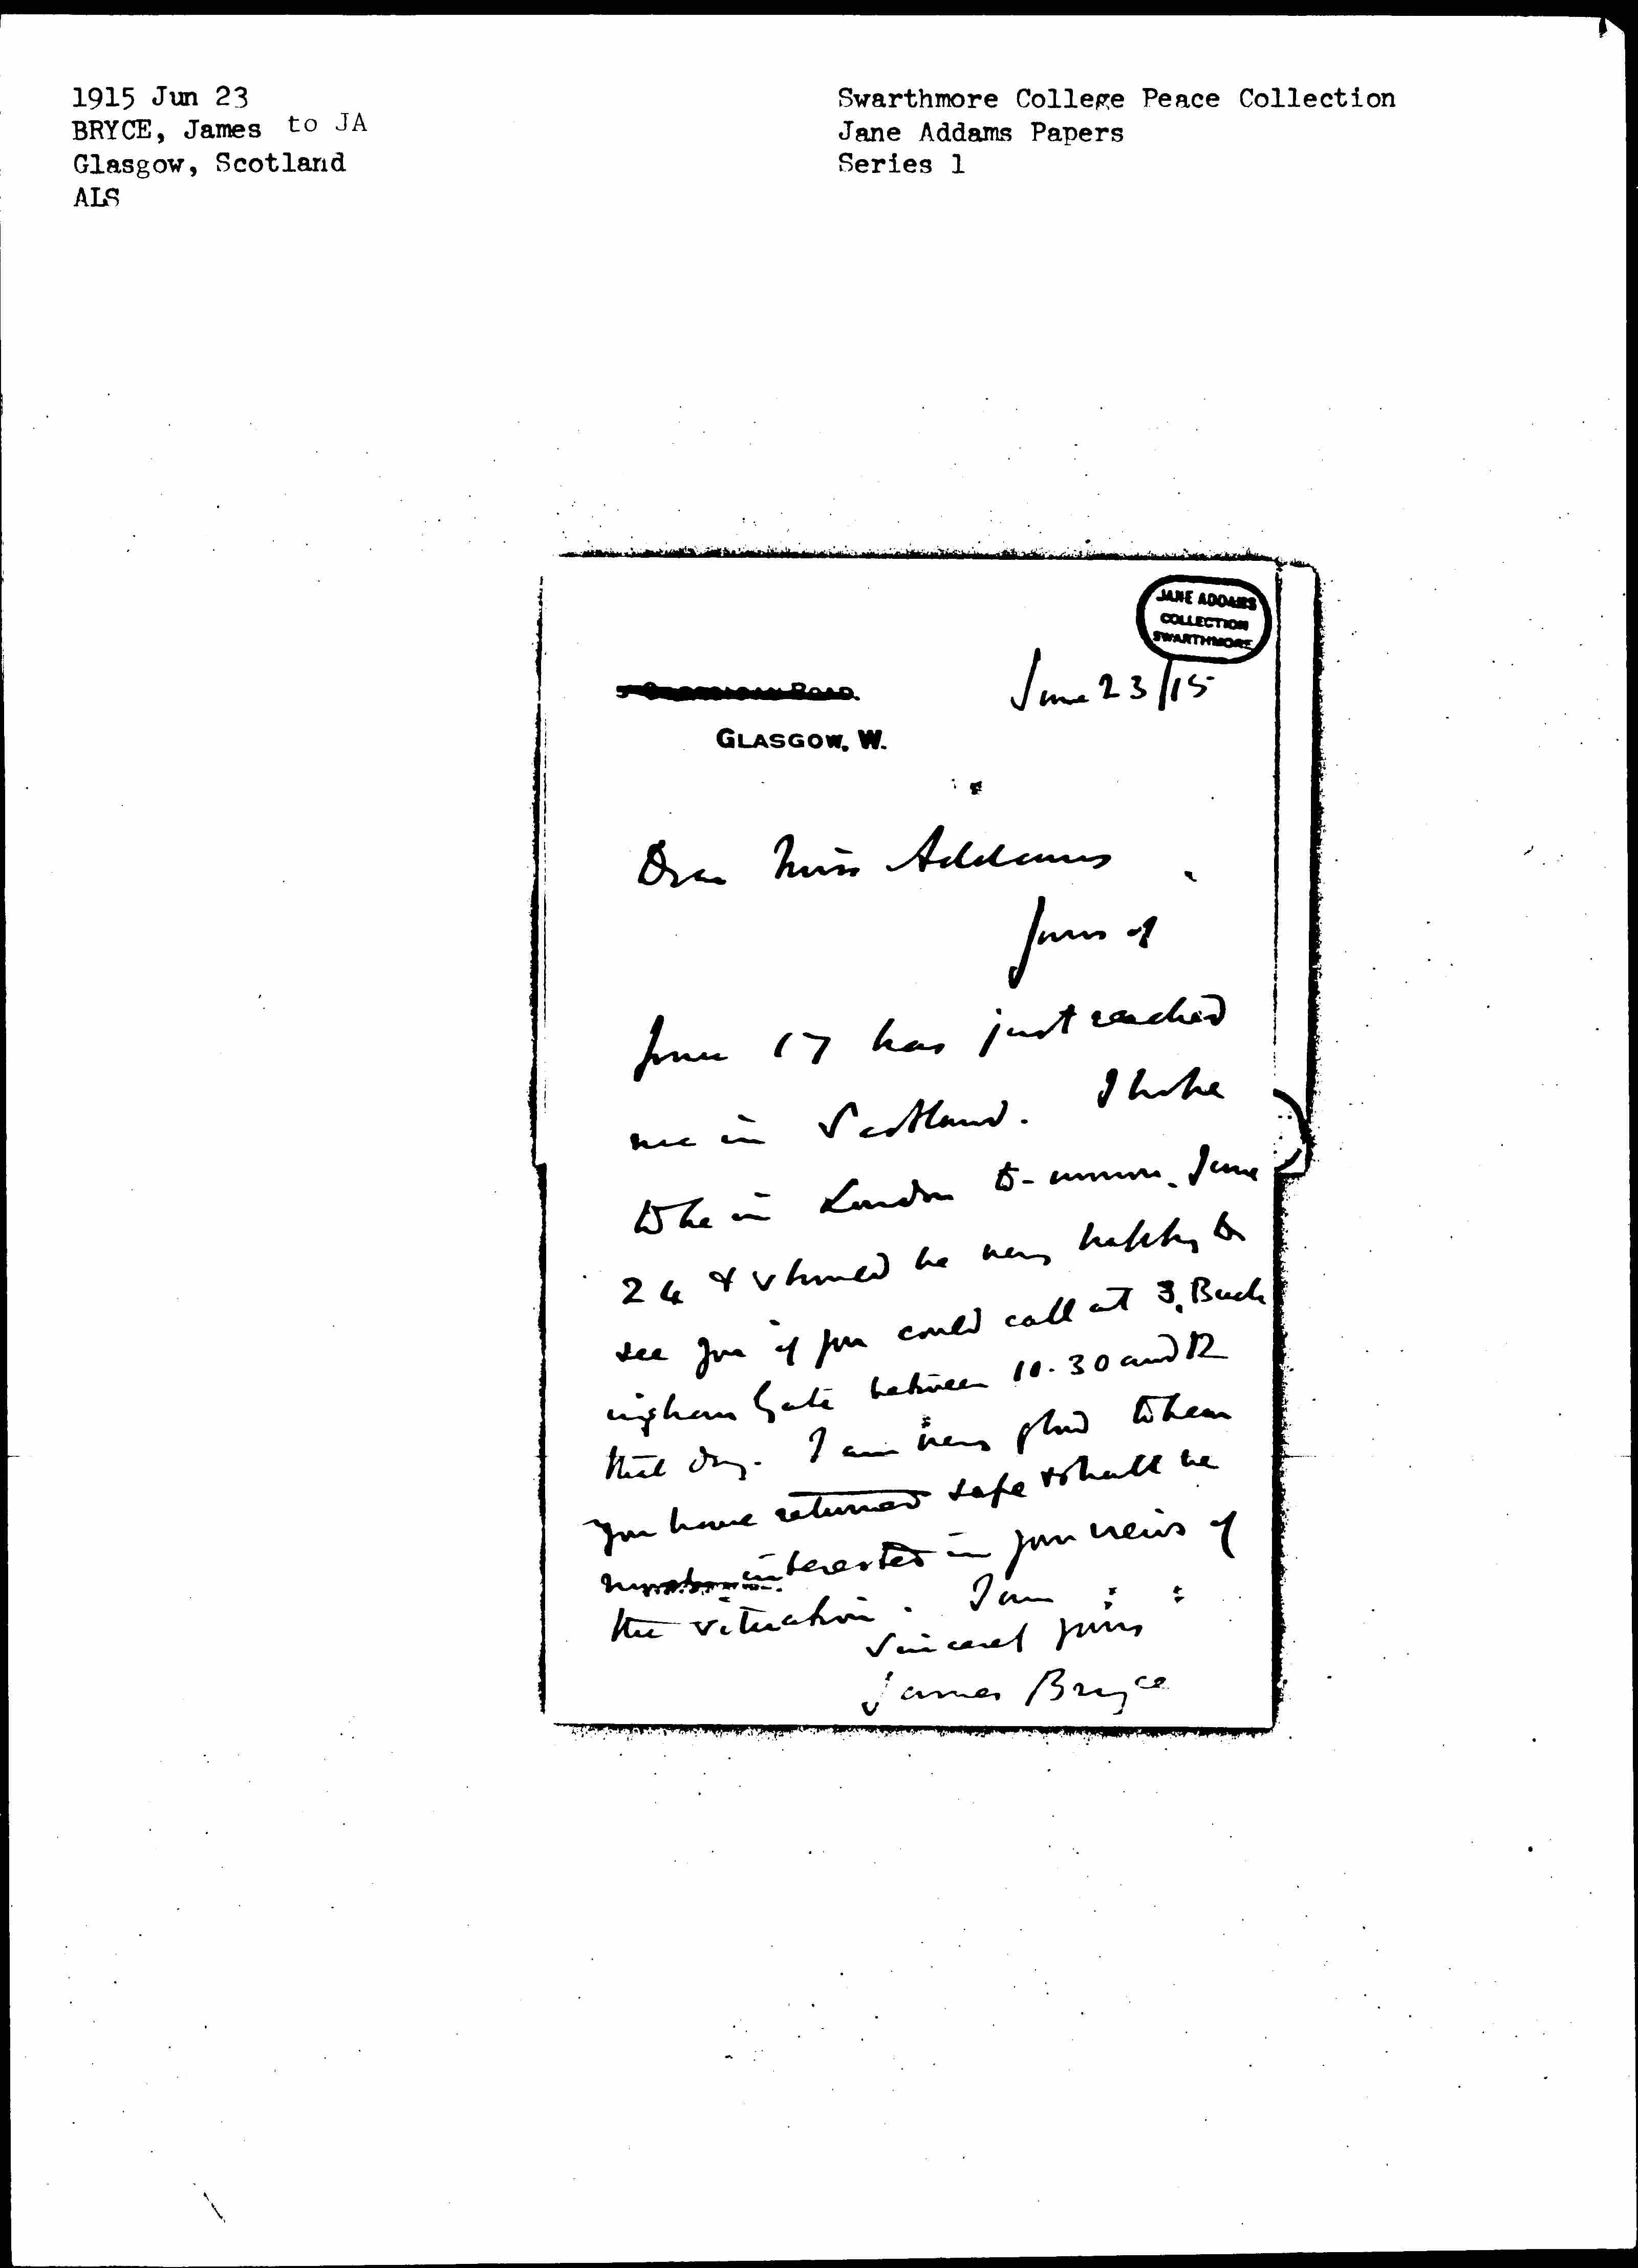 1915 Jun 23
BRYCE, James to JA
Glasgow, Scotland
ALS
Swarthmore College Peace Collection
Jane Addams Papers
Series 1
JANE ADDAMS
COLLECTION
SWARTHMORE
June 23/15
Road.
Glasgow, W.
Dear Miss Addams
Yours of
June 17 has just reached
me in Scotland. I hope
to be in London to-morrow, June
24 & should be very happy to
see you if you could call at 3, Buck
ingham Gate between 10.30 and 12
that day. I am very glad to hear
you have returned safe & shall be
interested in your views of
the situation. I am
Sincerely yours
James Bryce